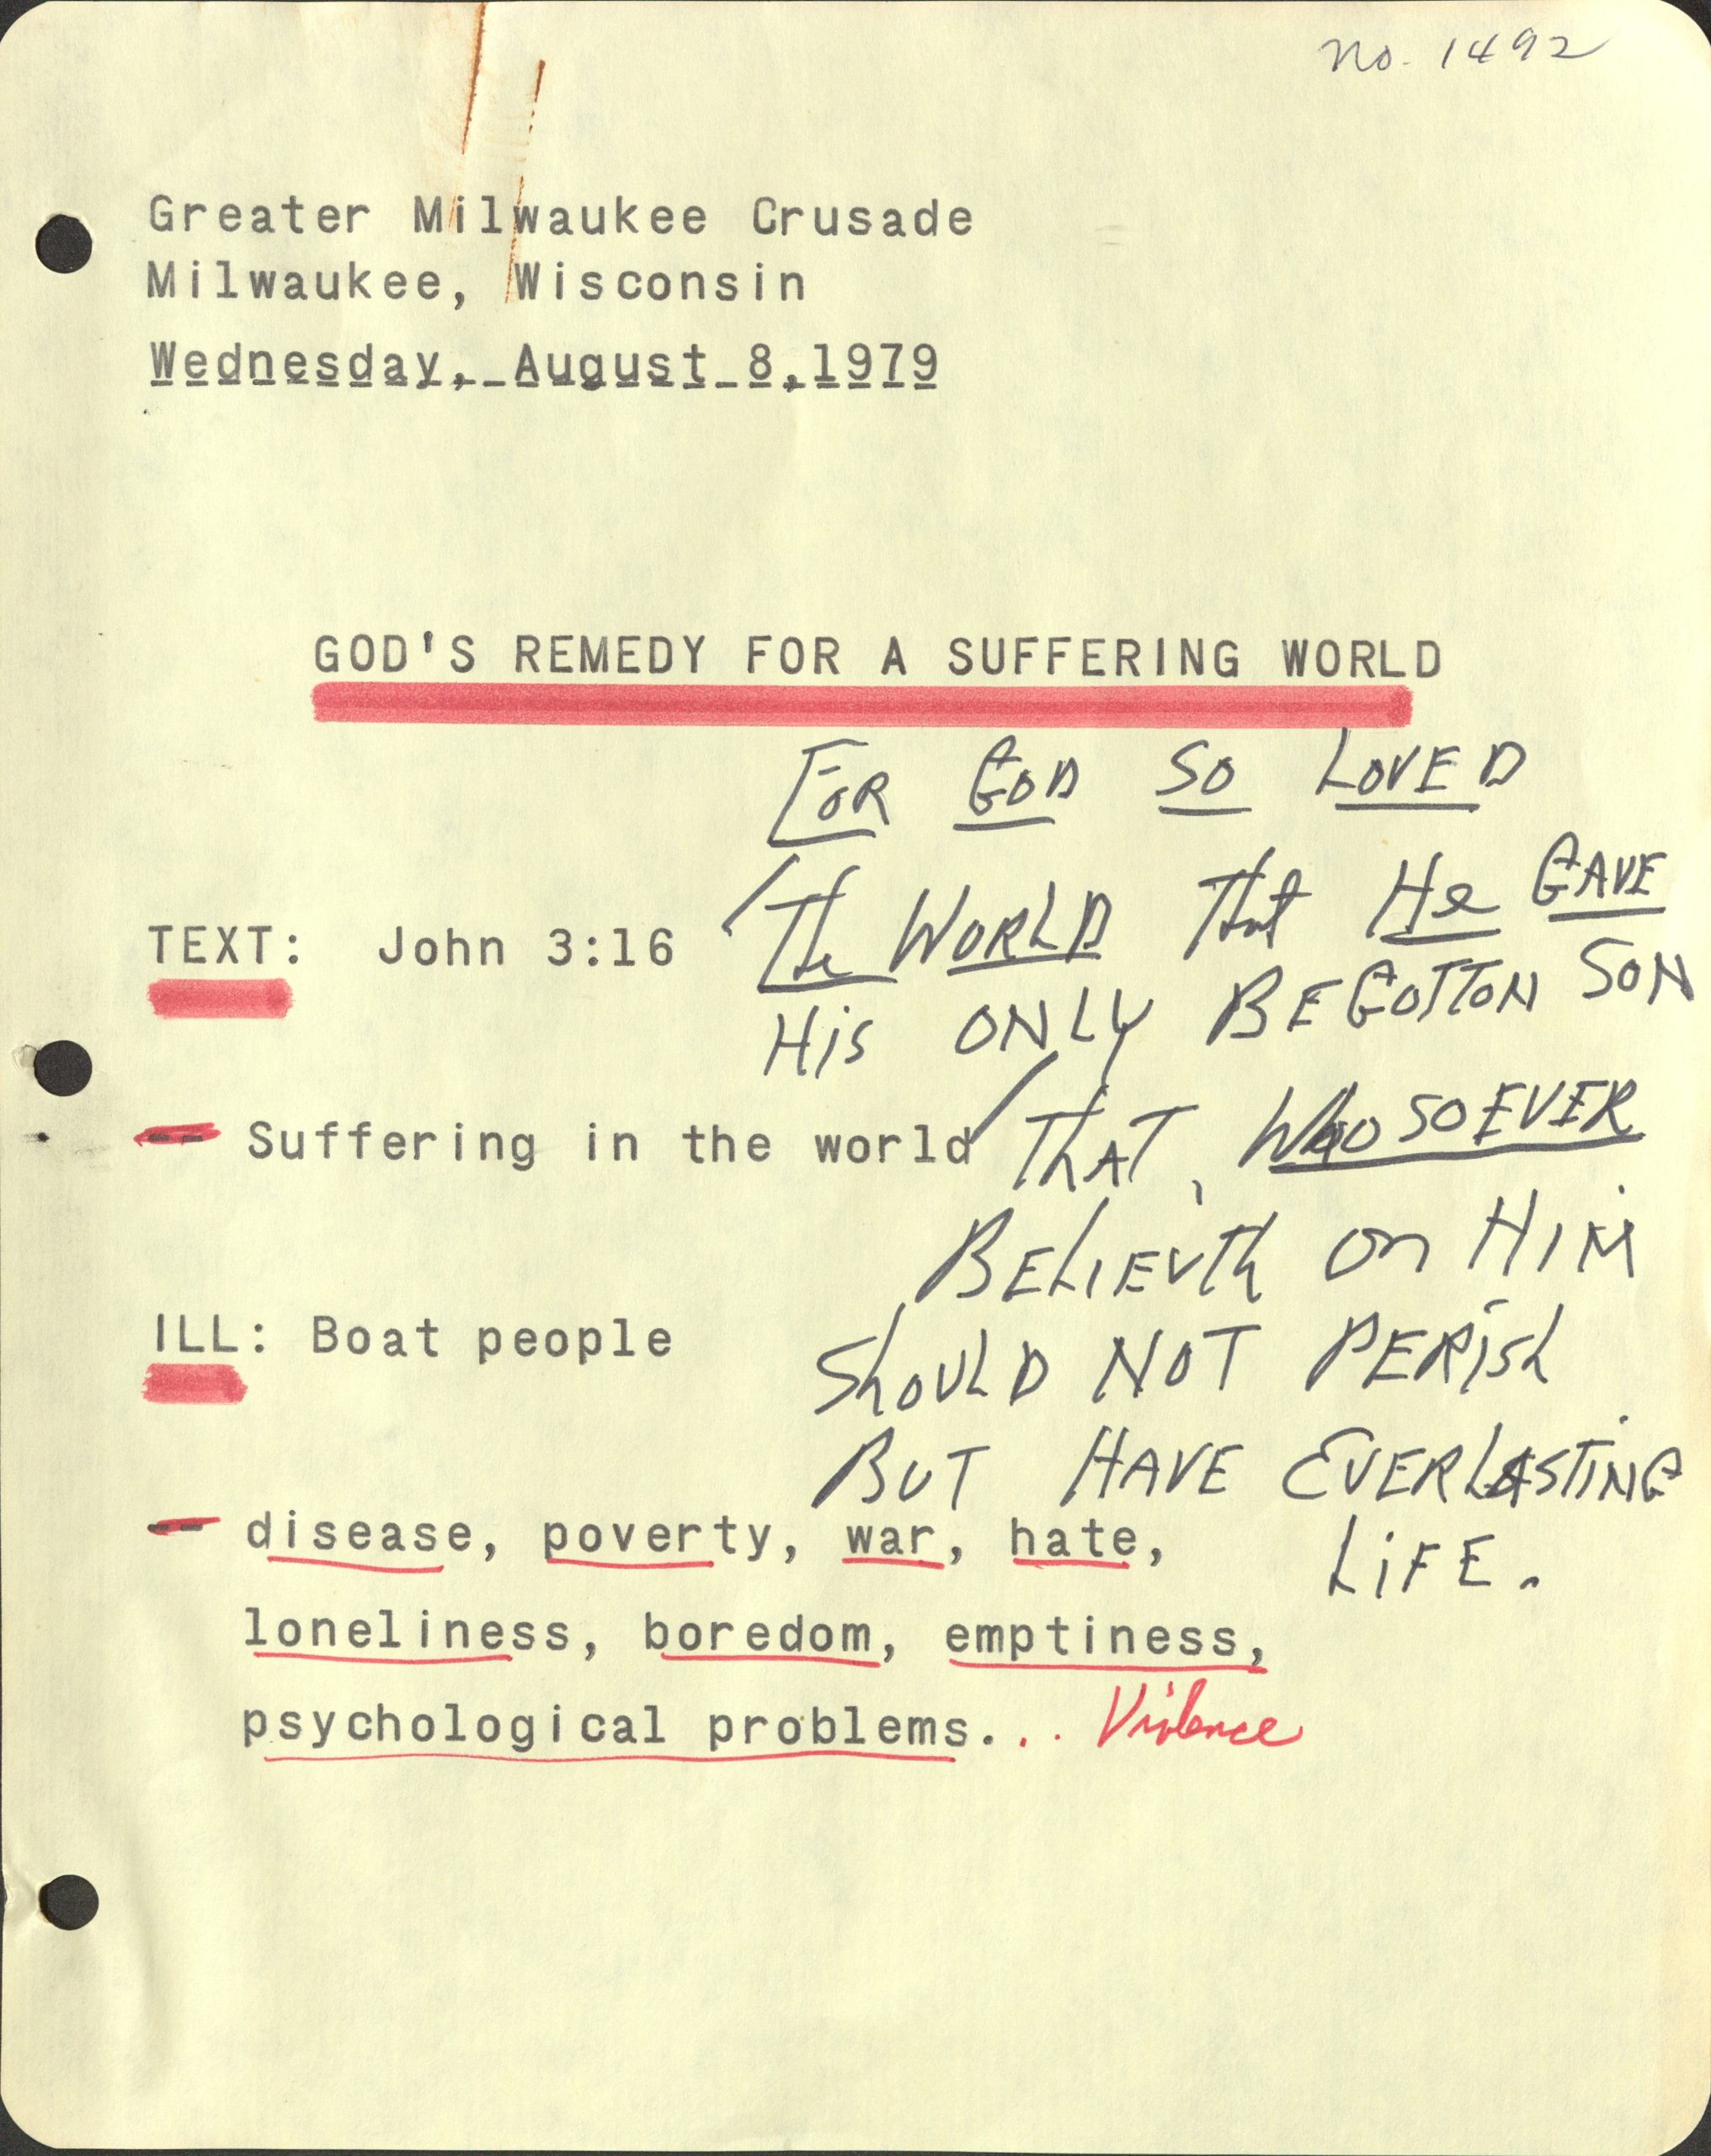 no. 1492
Greater Milwaukee Crusade
Milwaukee, Wisconsin
Wednesday, August 8, 1979
GOD'S REMEDY FOR A SUFFERING WORLD
FOR GOD SO LOVED
The WORLD That He GAVE
TEXT: John 3:16
HiS ONLY BEGOTTON SON
-- Suffering in the world
ThAT, WhoSOEVER
BELIEVTh on HIM
ILL: Boat people
ShOULD NOT PERiSh
BUT HAVE EVERLASTING
LiFE.
-- disease, poverty, war, hate,
loneliness, boredom, emptiness,
psychological problems... Violence